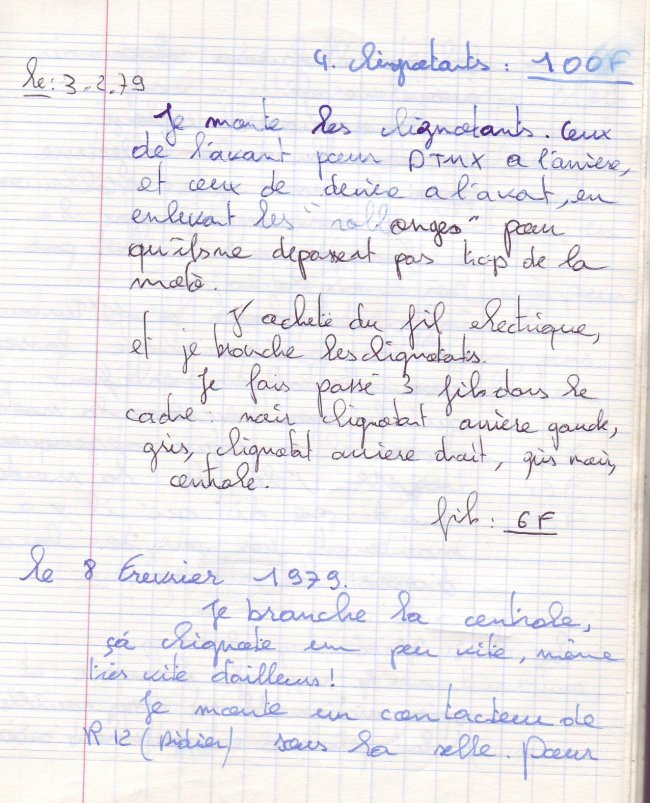 4. clignotants : 100F
le : 3.2.79
Je monte les clignotants. Ceux
de l'avant pour DTMX a l'arrière,
et ceux de derière a l'avant, en
enlevant les "rallonges" pour
qu'ils ne depassent pas trop de la
moto.
J'achete du fil electrique,
et je branche les clignotants.
Je fais passé 3 fils dans le
cadre : noir clignotant arriere gauche,
gris, clignotat arriere droit, gris noir,
centrale.
fil : 6F
le 8 Frevrier 1979.
Je branche la centrale,
çá clignote un peu vite, même
très vite d'ailleurs !
Je monte un contacteur de
R 12 (Didier) sous la selle. pour